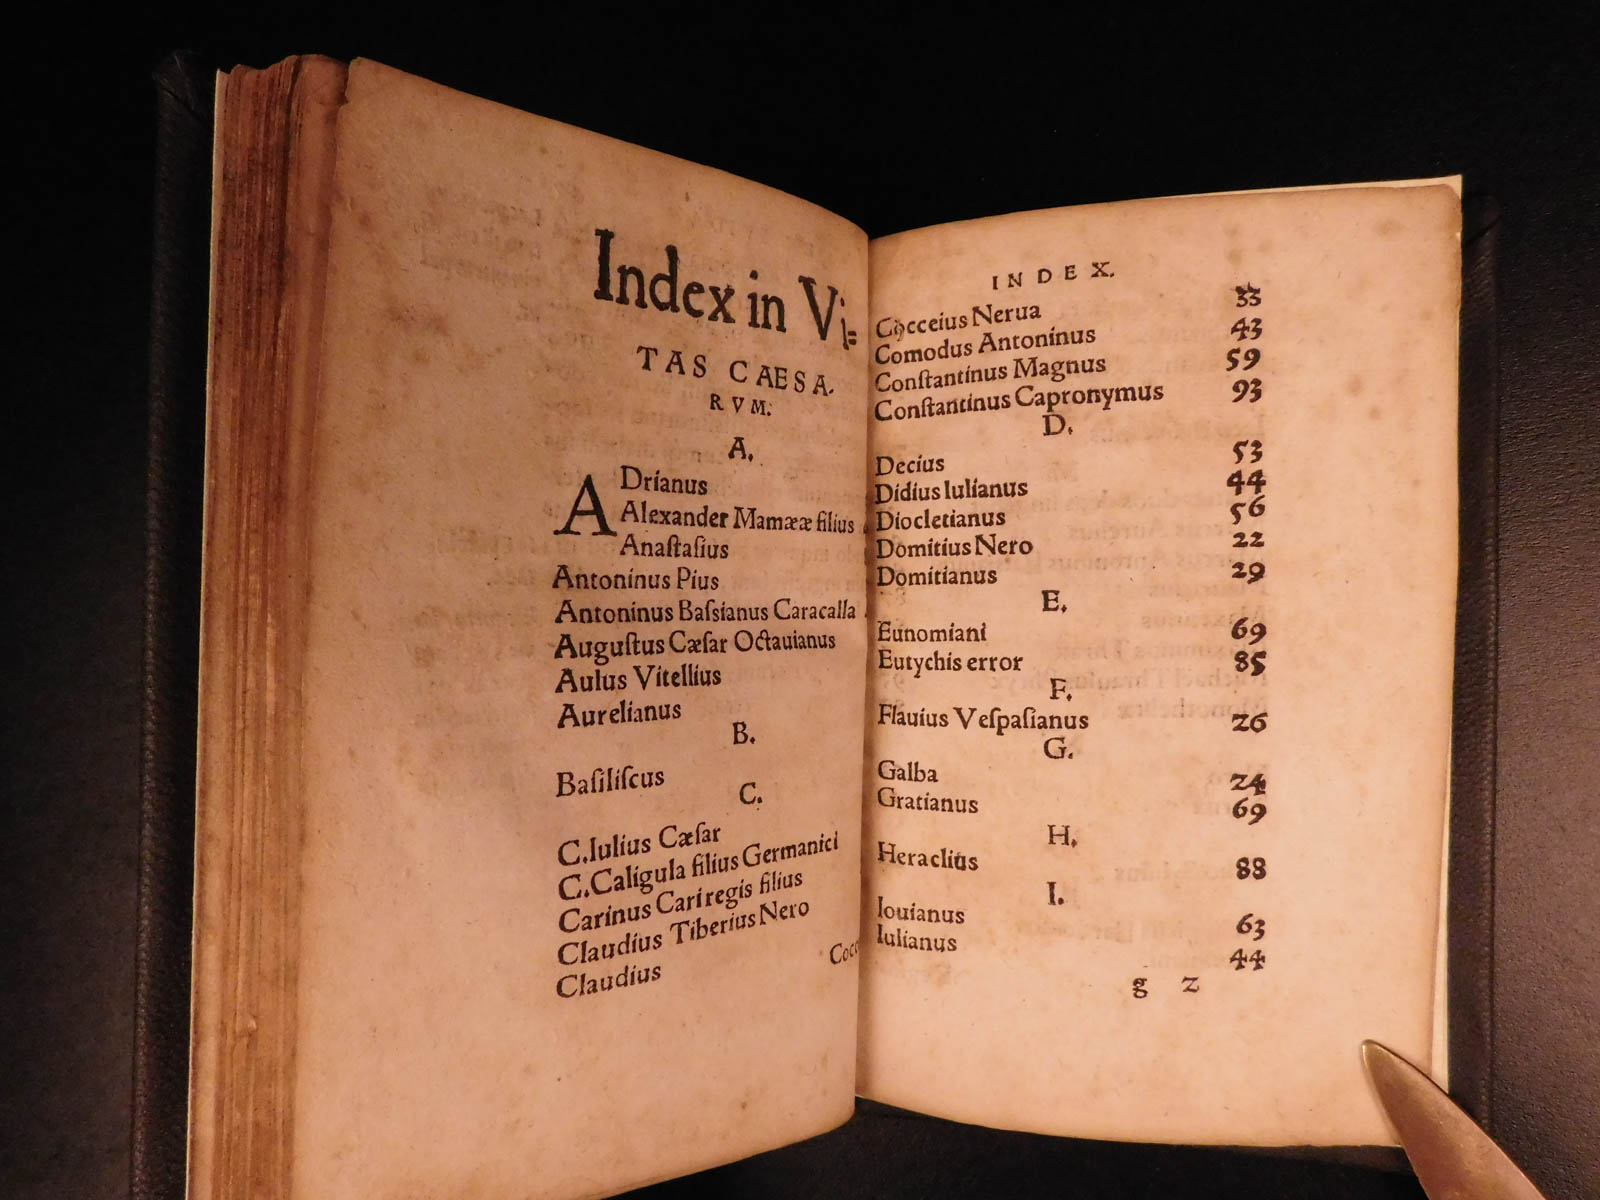 Index in Vi=
TAS CAESA.
RVM.
A.
ADrianus
Alexander Mamææ filius
Anaſtaſius
Antoninus Pius
Antoninus Baſsianus Caracalla
Auguſtus Cæſar Octauianus
Aulus Vitellius
Aurelianus
B.
Baſiliſcus
C.
C.Iulius Cæſar
C.Caligula filius Germanici
Carinus Cari regis filius
Claudius Tiberius Nero
Claudius
Cocc
INDEX.
Cocceius Nerua 33
Comodus Antoninus 43
Conſtantinus Magnus 59
Conſtantinus Capronymus 93
D.
Decius 53
Didius Iulianus 44
Diocletianus 56
Domitius Nero 22
Domitianus 29
E.
Eunomiani 69
Eutychis error 85
F.
Flauius Veſpaſianus 26
G.
Galba 24
Gratianus 69
H.
Heraclius 88
I.
Iouianus 63
Iulianus 44
g 2